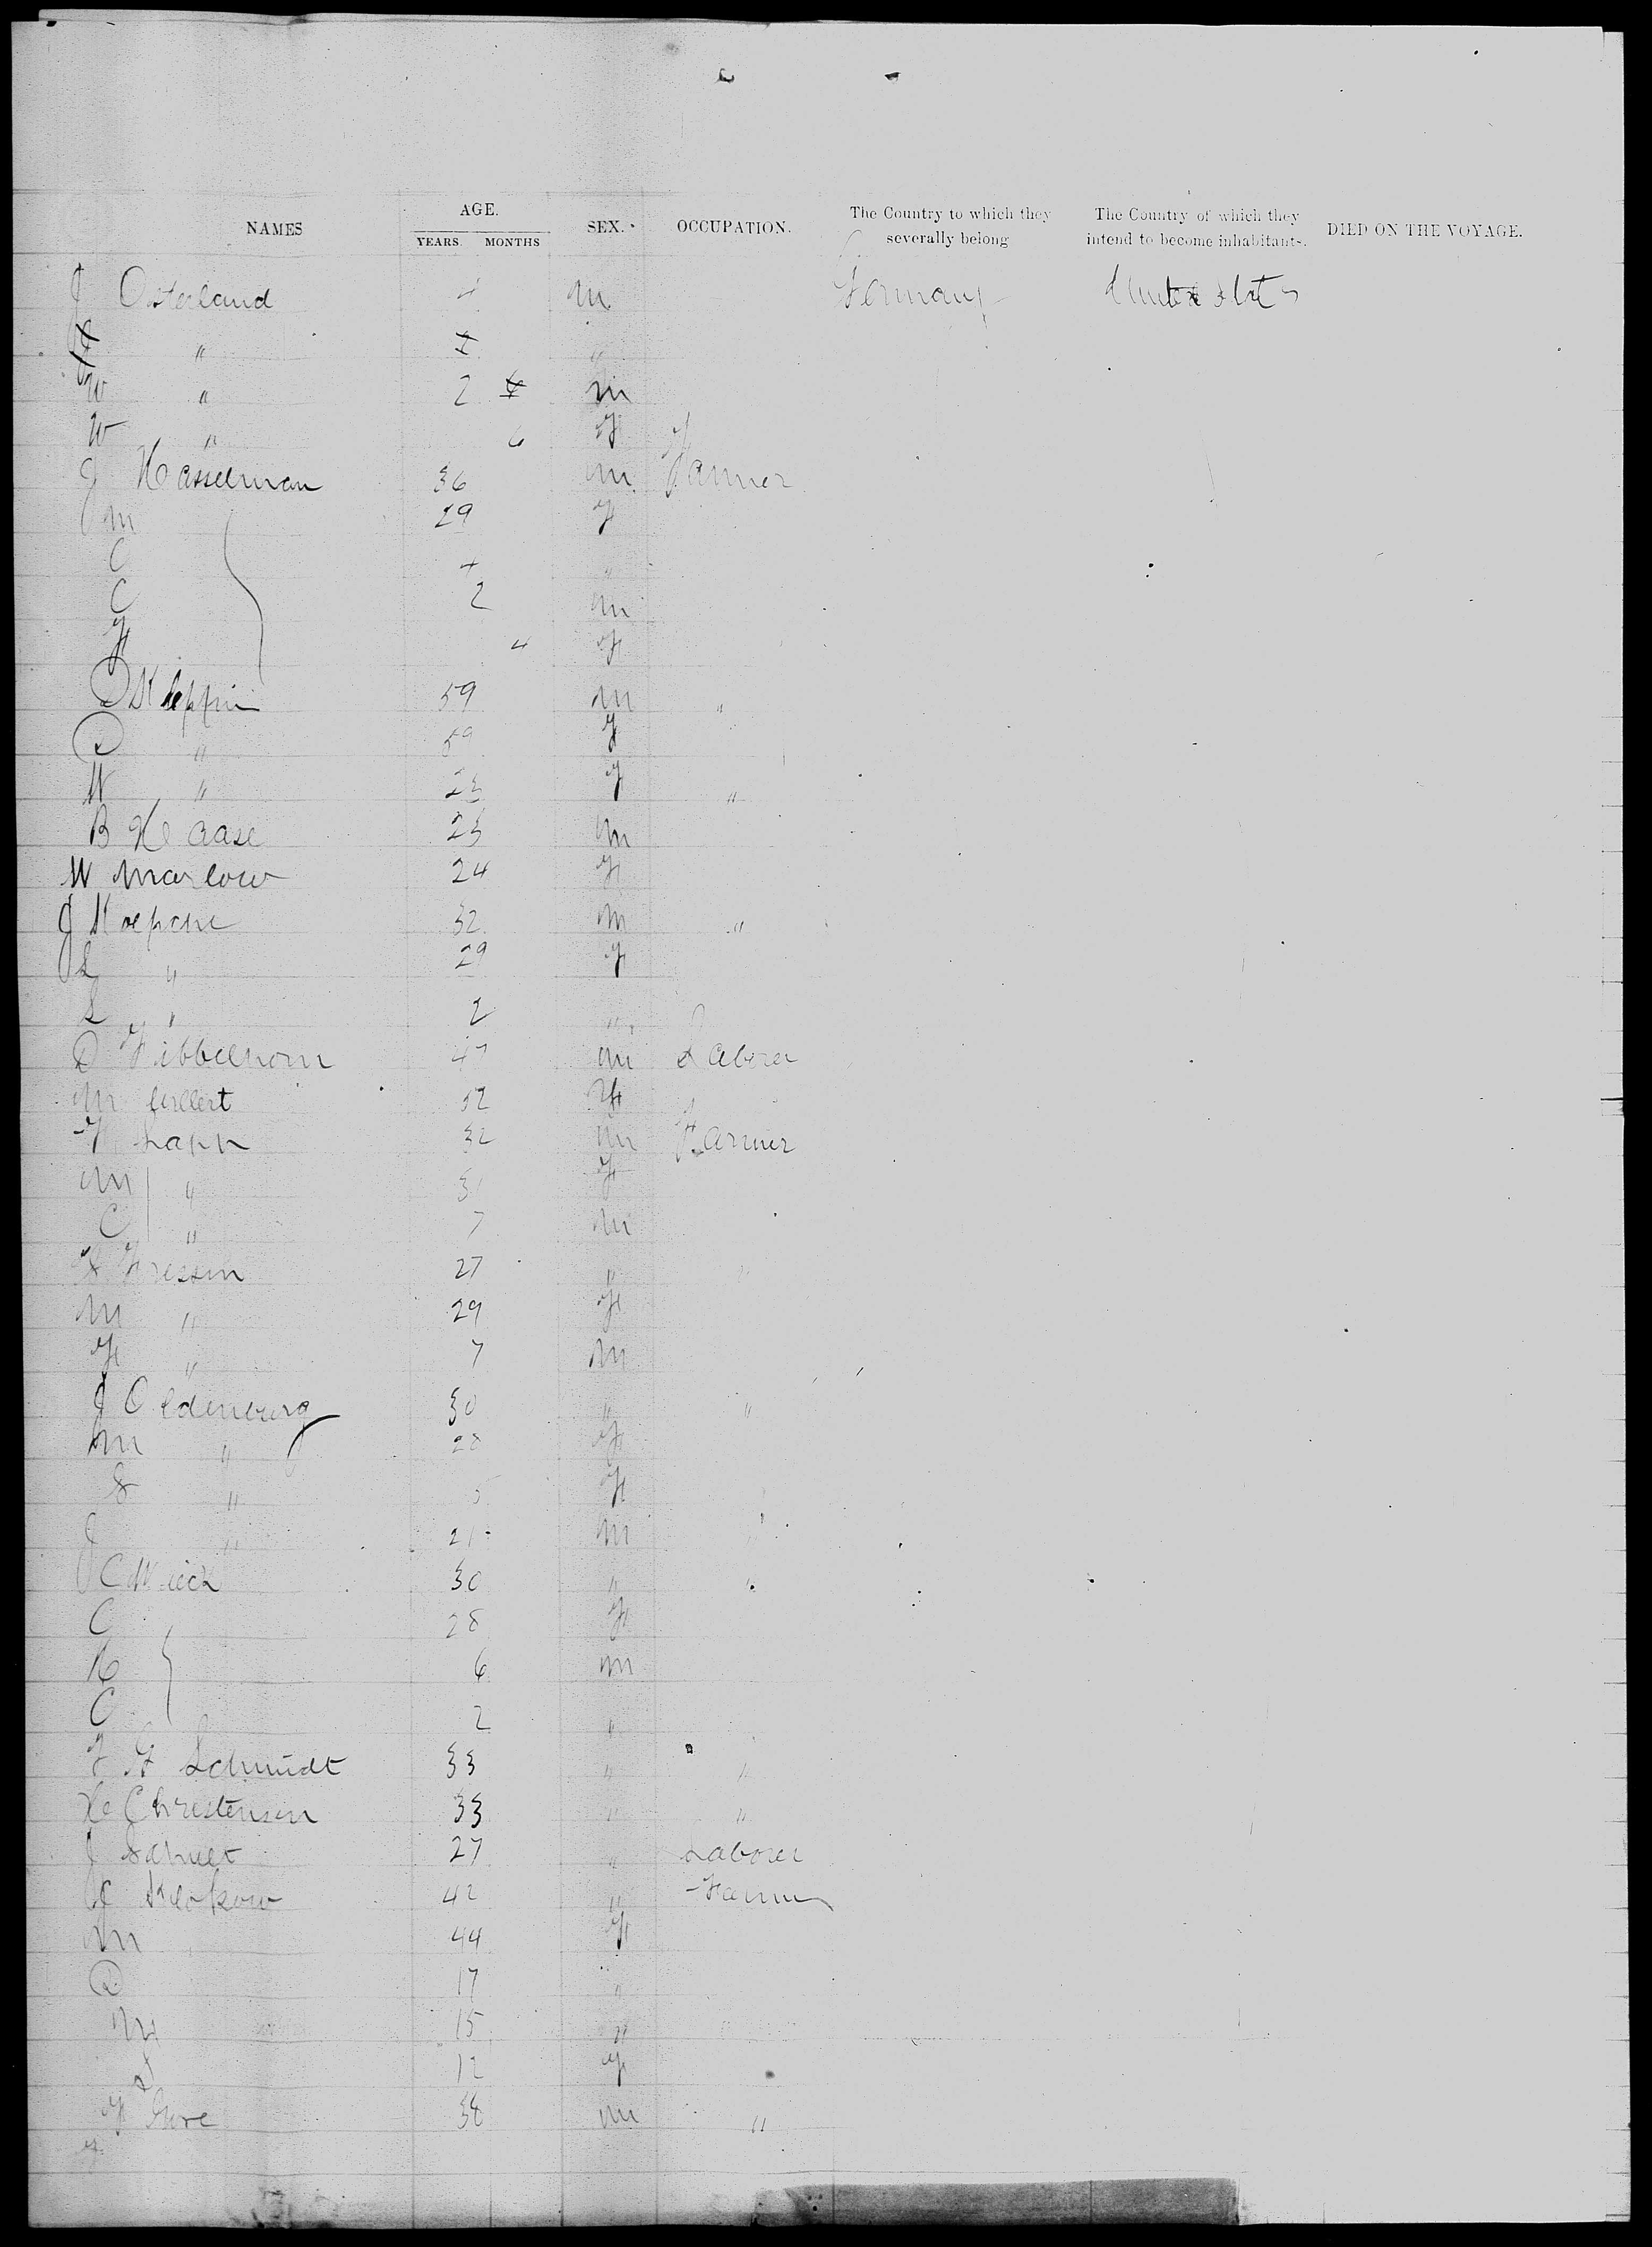 NAMES AGE. YEARS. MONTHS SEX. OCCUPATION. The Country to which they severally belong The Country of which they intend to become inhabitants. DIED ON THE VOYAGE.
J Osterland 4 m Germany United States
" "
W " 2 m
W " 6 f
J Hasselman 36 m Farmer
M 29 f
C 4 "
C 2 m
F 4 f
D Kleppin 59 m "
D " 59 f
W " 23 f "
B Haase 23 m
W Marlow 24 f
J Koepche 32 m "
L " 29 f
L " 2 "
D Fibbelkorn 47 m Laborer
M 52 f
F 32 m Farmer
M " 31 f
C " 7 m
F Fressin 27 " "
M " 29 f
F " 7 m
J Oldenburg 30 " "
M " 28 f
S " 5 f
J " 21 m "
C Wieck 30 " "
C 28 f
H 6 m
C 2 "
F G Schmidt 33 " "
H Christensen 33 " "
J Schult 27 " Laborer
C Klokow 42 " Farmer
M 44 f
D 17 "
M 15 "
12 f
F Gure 38 m "